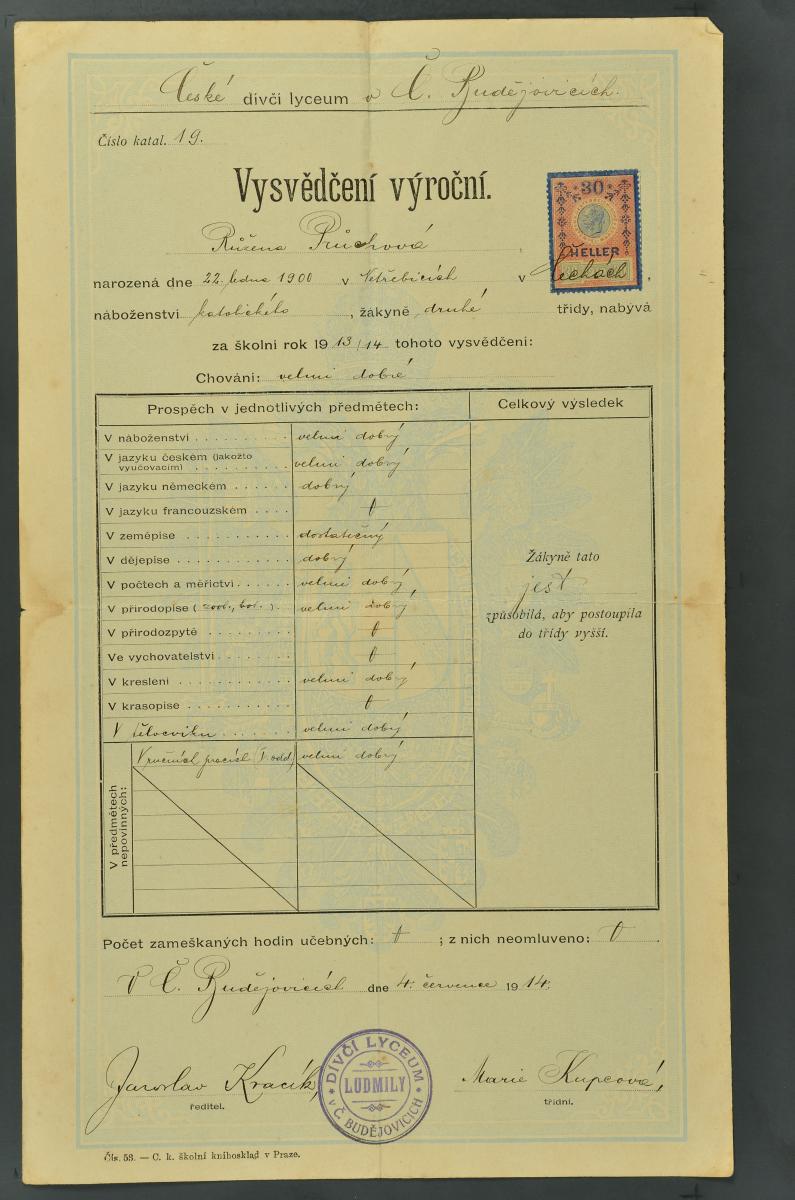 České dívčí lyceum v Č. Budějovicích.
Číslo katal. 19.
Vysvědčení výroční.
30
HELLER
Růžena Průchová
narozená dne 22. ledna 1900 v Netřebicích v Čechách,
náboženství katolického, žákyně druhé třídy, nabývá
za školní rok 1913/14 tohoto vysvědčení:
Chování: velmi dobré
Prospěch v jednotlivých předmětech: Celkový výsledek
V náboženství velmi dobrý
V jazyku českém (jakožto
vyučovacím) velmi dobrý
V jazyku německém dobrý
V jazyku francouzském
V zeměpise dostatečný
V dějepise dobrý
V počtech a měřictví velmi dobrý
V přírodopise (zool., bot.) velmi dobrý
V přírodozpytě
Ve vychovatelství
V kreslení velmi dobrý
V krasopise
V tělocviku velmi dobrý
V předmětech
nepovinných:
V ručních pracích (I. odd.) velmi dobrý
Žákyně tato
jest
způsobilá, aby postoupila
do třídy vyšší.
Počet zameškaných hodin učebných: 0; z nich neomluveno: 0.
V Č. Budějovicích dne 4. července 1914.
Jaroslav Kracík,
ředitel.
DÍVČÍ LYCEUM
LUDMILY
V Č. BUDĚJOVICÍCH
Marie Kupcová,
třídní.
Čís. 53. — C. k. školní knihosklad v Praze.